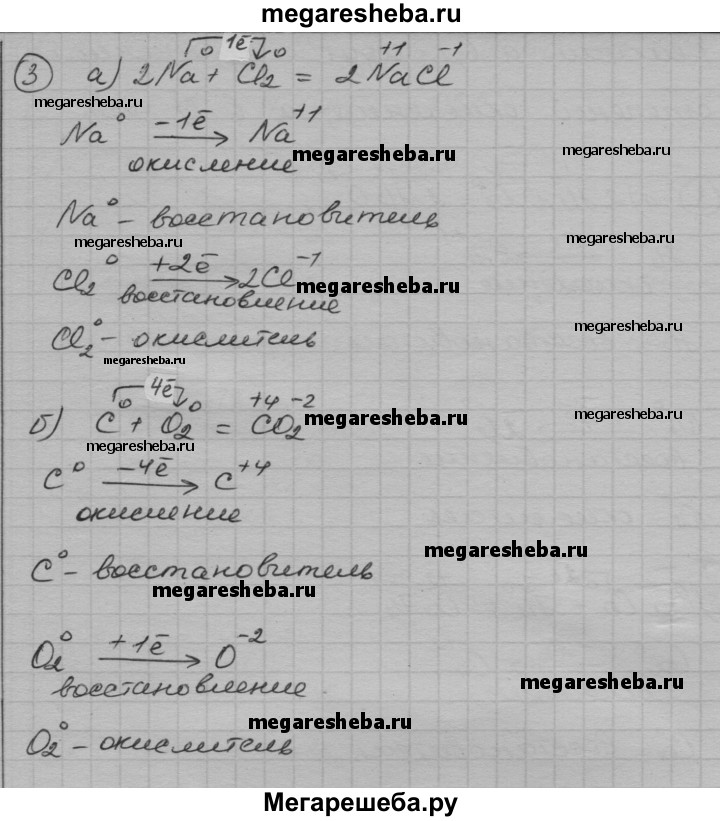 megaresheba.ru
1ē
0 0 +1 -1
3 а) 2Na + Cl₂ = 2NaCl
megaresheba.ru
Na⁰ —1ē→ Na⁺¹
megaresheba.ru
megaresheba.ru
окисление
Na⁰ - восстановитель
megaresheba.ru
megaresheba.ru
Cl₂⁰ +2ē→ 2Cl⁻¹
megaresheba.ru
восстановление
megaresheba.ru
Cl₂⁰ - окислитель
megaresheba.ru
4ē
0 0 +4 -2
б) C + O₂ = CO₂
megaresheba.ru
megaresheba.ru
megaresheba.ru
C⁰ —4ē→ C⁺⁴
окисление
megaresheba.ru
C⁰ - восстановитель
megaresheba.ru
O₂⁰ +1ē→ O⁻²
восстановление
megaresheba.ru
megaresheba.ru
O₂⁰ - окислитель
Мегарешеба.ру